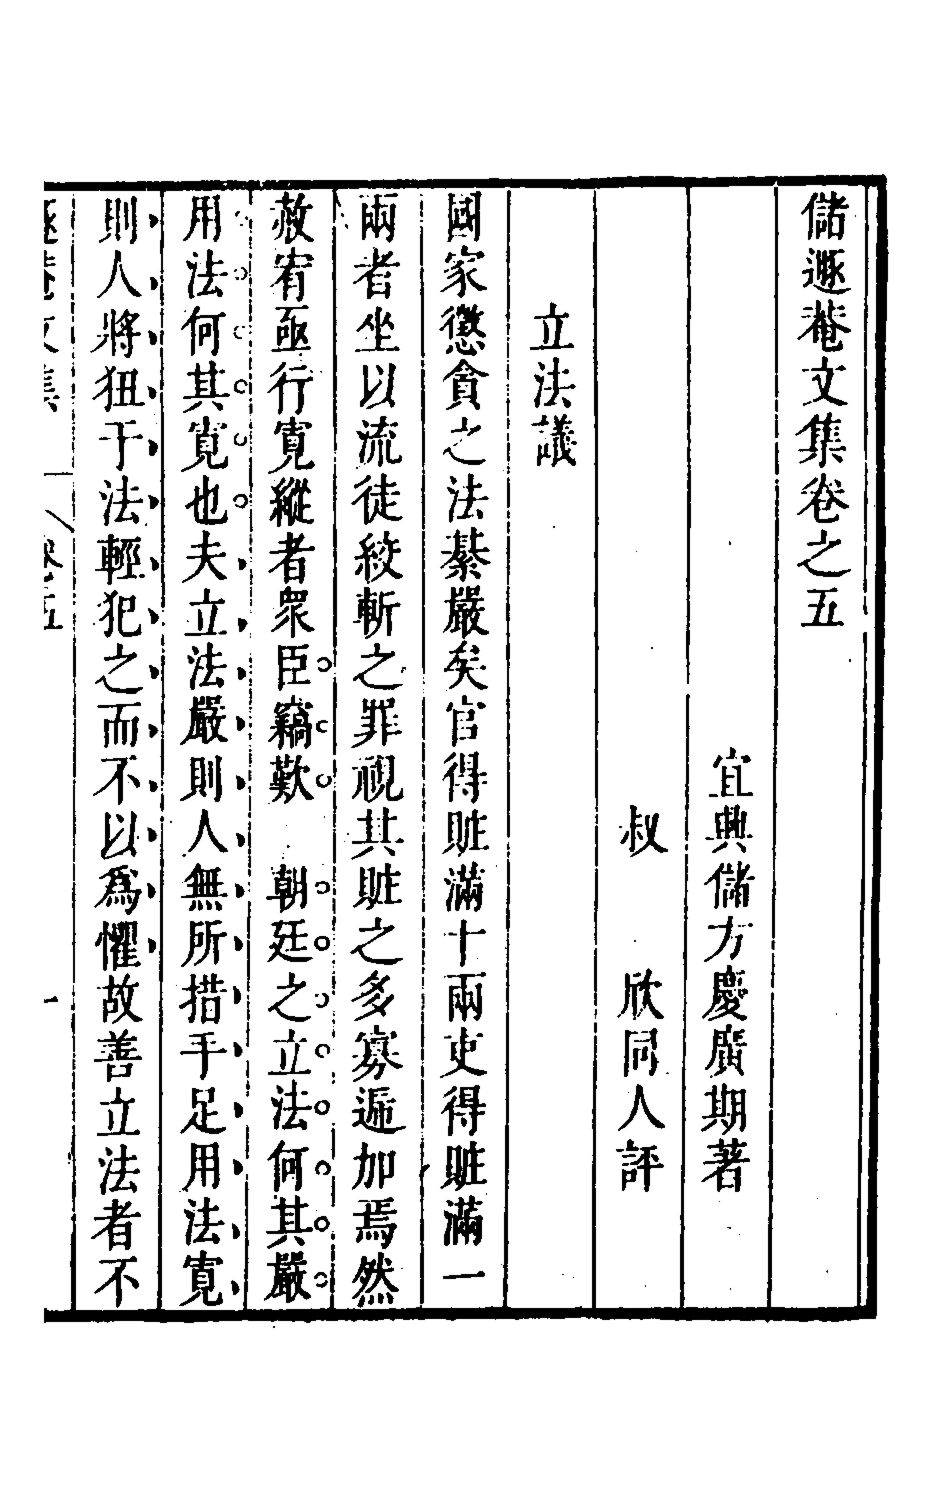 儲遯菴文集卷之五
宜興儲方慶廣期著
叔　欣同人評
立法議
國家懲貪之法綦嚴矣官得賍滿十兩吏得賍滿一
兩者坐以流徒絞斬之罪視其賍之多寡遞加焉然
赦宥亟行寬縱者衆臣竊歎　朝廷之立法何其嚴
用法何其寬也夫立法嚴則人無所措手足用法寬
則人將狃于法輕犯之而不以爲懼故善立法者不
遯菴文集　卷五　一